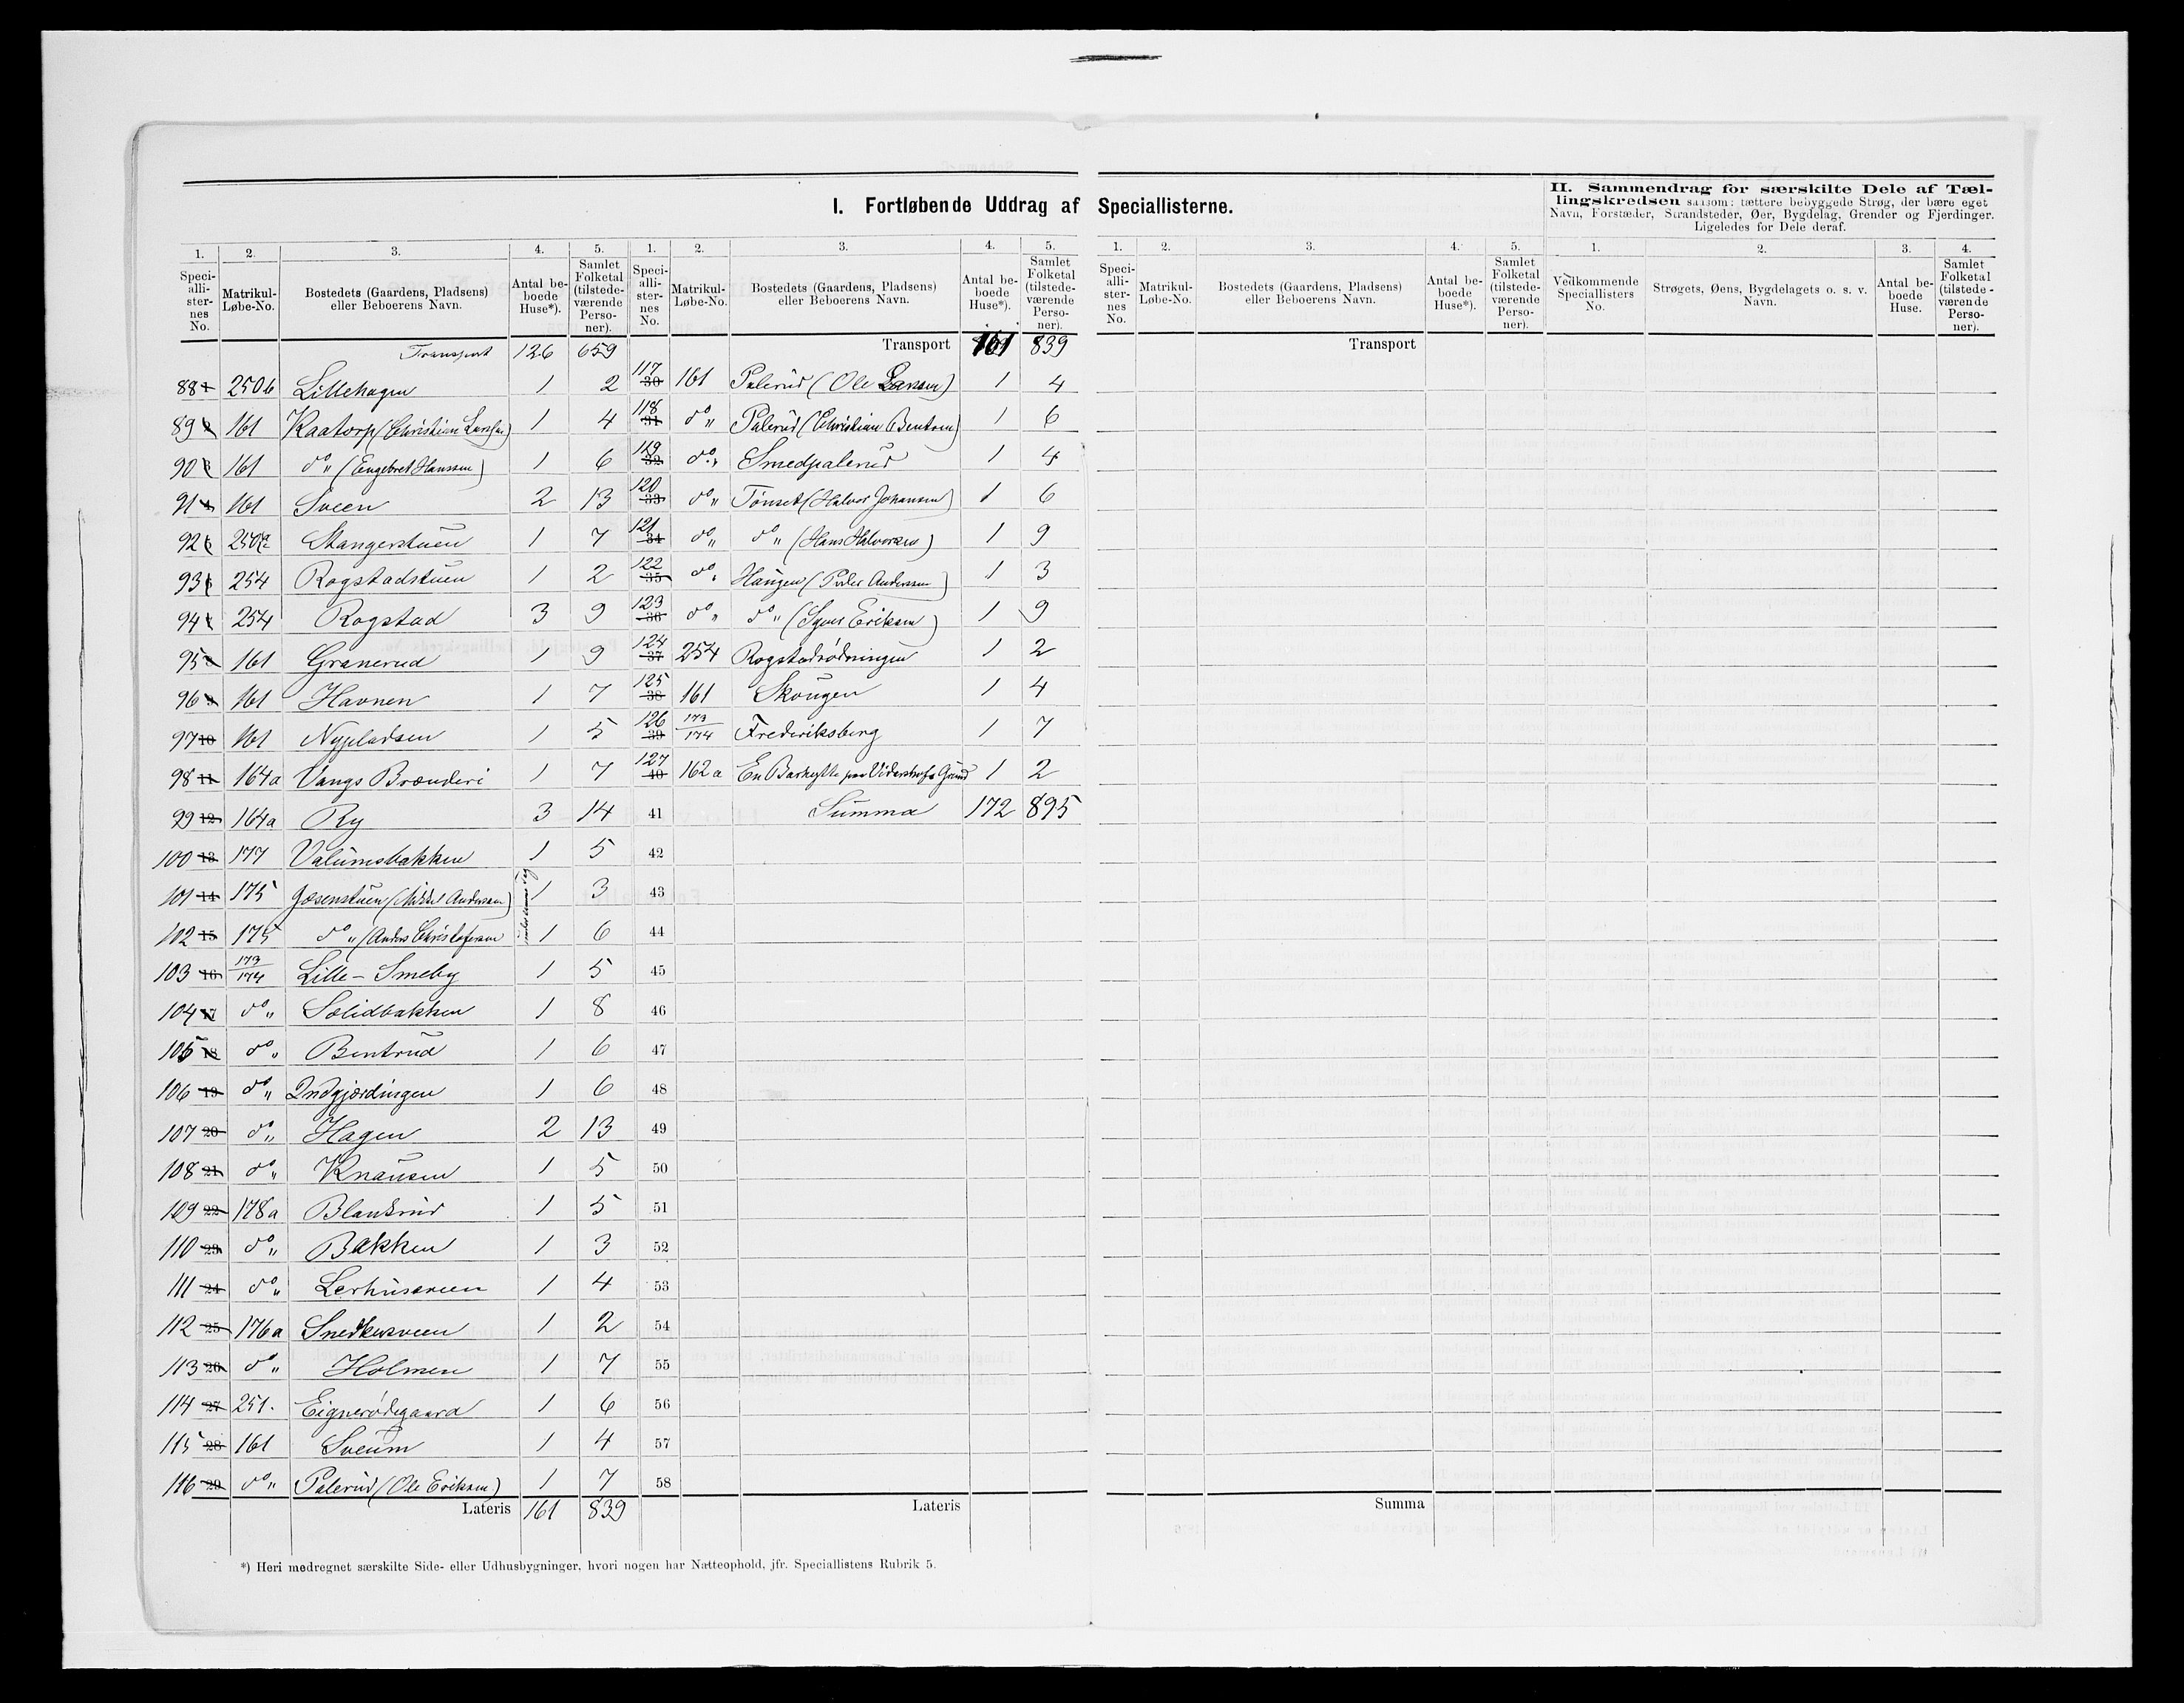 I. Fortløbende Uddrag af Speciallisterne.
II. Sammendrag for særskilte Dele af Tællingskredsen saasom: tættere bebyggede Strøg, der bære eget Navn, Forstæder, Strandsteder, Øer, Bygdelag, Grender og Fjerdinger. Ligeledes for Dele deraf.
1. 2. 3. 4. 5. 1. 2. 3. 4. 5. 1. 2. 3. 4. 5. 1. 2. 3. 4.
Speciallisternes No. Matrikul-Løbe-No. Bostedets (Gaardens, Pladsens) eller Beboerens Navn. Antal beboede Huse*). Samlet Folketal (tilstedeværende Personer).
Speciallisternes No. Matrikul-Løbe-No. Bostedets (Gaardens, Pladsens) eller Beboerens Navn. Antal beboede Huse*). Samlet Folketal (tilstedeværende Personer).
Speciallisternes No. Matrikul-Løbe-No. Bostedets (Gaardens, Pladsens) eller Beboerens Navn. Antal beboede Huse*). Samlet Folketal (tilstedeværende Personer).
Vedkommende Speciallisters No. Strøgets, Øens, Bygdelagets o. s. v. Navn. Antal beboede Huse. Samlet Folketal (tilstedeværende Personer).
Transport 126 659
88 250b Lillehagen 1 2
89 161 Kaatorp (Christian Larsen) 1 4
90 161 do (Engebret Hanssen) 1 6
91 161 Sveen 2 13
92 250a Stangerstuen 1 7
93 254 Rogstadstuen 1 2
94 254 Rogstad 3 9
95 161 Granerud 1 9
96 161 Havnen 1 7
97 10 161 Nypladsen 1 5
98 11 164a Vangs Brænderi 1 7
99 12 164a Ry 3 14
100 13 177 Valumsbakken 1 5
101 14 175 Gosenstuen (Mikkel Andersen) 1 3
102 15 175 do (Anders Christofersen 1 6
103 16 173/174 Lille-Smeby 1 5
104 17 do Solidbakken 1 8
105 18 do Bentrud 1 6
106 19 do Indgjærdingen 1 6
107 20 do Hagen 2 13
108 21 do Knausen 1 5
109 22 178a Blankrud 1 5
110 23 do Bakken 1 3
111 24 do Lerhussveen 1 4
112 25 176a Snedkersveen 1 2
113 26 do Holmen 1 7
114 27 251. Eignerødegaard 1 6
115 28 161 Sveum 1 4
116 29 do Palerud (Ole Eriksen) 1 7
Lateris 161 839
Transport 161 839
117 30 161 Palerud (Ole Larsen) 1 4
118 31 do Palerud (Christian Bentsen) 1 6
119 32 do Smedpalerud 1 4
120 33 do Tønset (Halvor Johansen) 1 6
121 34 do do (Hans Halvorsen) 1 9
122 35 do Haugen (Peder Andersen) 1 3
123 36 do do (Syver Eriksen) 1 9
124 37 254 Rogstadrødningen 1 2
125 38 161 Skougen 1 4
126 39 173/174 Frederiksberg 1 7
127 40 162a En Barhytte paa Vidershofs Grund 1 2
41 Summa 172 895
42
43
44
45
46
47
48
49
50
51
52
53
54
55
56
57
58
Lateris
Transport
Summa
*) Heri medregnet særskilte Side- eller Udhusbygninger, hvori nogen har Natteophold, jfr. Speciallistens Rubrik 5.